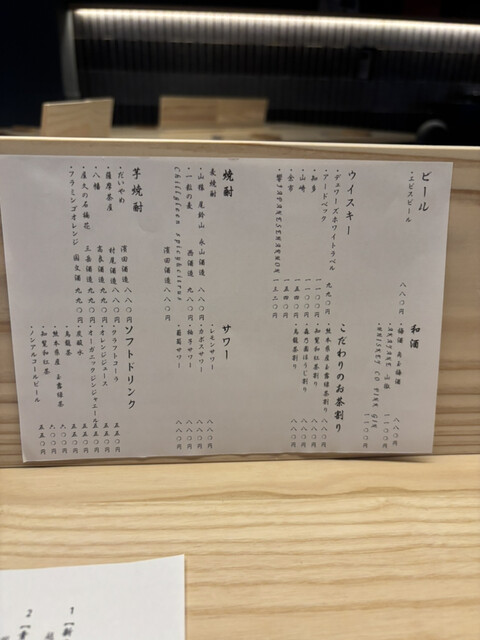 ビール
・エビスビール 八八〇円
ウイスキー
・デュワーズホワイトラベル 九九〇円
・アードベック 一一〇〇円
・知多 一一〇〇円
・山崎 一五四〇円
・余市 一五四〇円
・響JAPANESEHARMONY 一三二〇円
焼酎
麦焼酎
・山猿 尾鈴山 永山酒造 八八〇円
・一粒の麦 西酒造 九八〇円
Chillgreen spicy&citrus
濱田酒造 八八〇円
芋焼酎
・だいやめ 濱田酒造 八八〇円
・薩摩茶屋 村尾酒造 八八〇円
・八幡 高良酒造 九九〇円
・屋久の石楠花 三岳酒造 九九〇円
・フラミンゴオレンジ 国分酒 九九〇円
和酒
・梅酒 八八〇円
・AKAYANE 一一〇〇円
・WHISKEY CO PINK GIN 一一〇〇円
こだわりのお茶割り
・熊本県産玉露緑茶割り 八八〇円
・加賀和紅茶割り 八八〇円
・ほうじ茶割り 八八〇円
・烏龍茶割り 八八〇円
サワー
・レモンサワー 八八〇円
・カボスサワー 八八〇円
・柚子サワー 八八〇円
・葡萄サワー 八八〇円
ソフトドリンク
・クラフトコーラ 五五〇円
・オレンジジュース 五五〇円
・オーガニックジンジャエール 五五〇円
・炭酸水 五五〇円
・烏龍茶 五五〇円
・熊本県産玉露緑茶 六〇〇円
・加賀和紅茶 六〇〇円
・ノンアルコールビール 五五〇円
1【新
2【